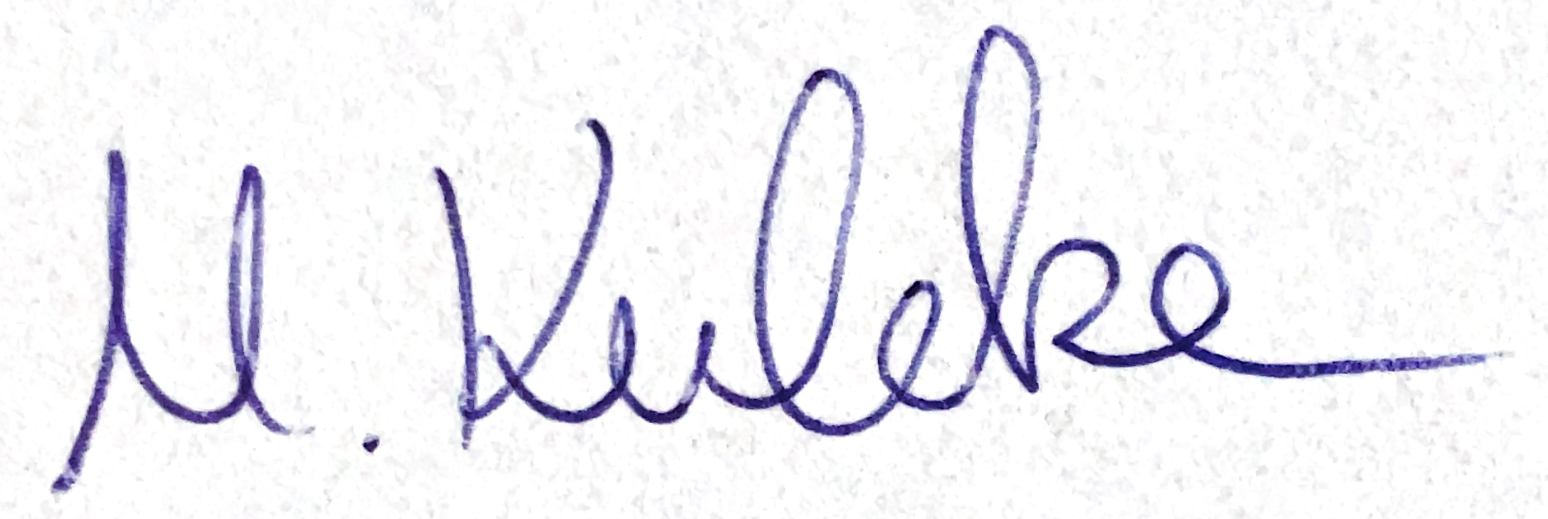 M. Kuleke